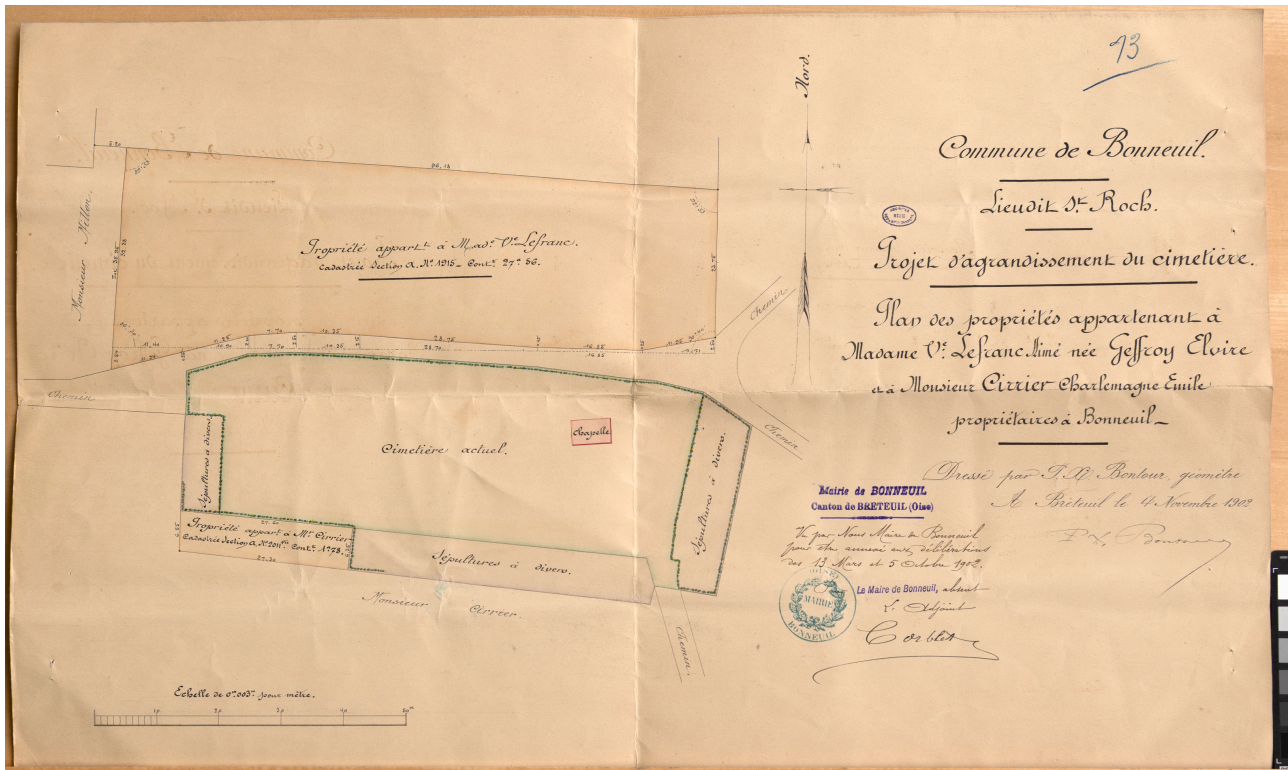 93
Nord.
Commune de Bonneuil.
Lieudit St. Roch.
Projet d'agrandissement du cimetière.
Plan des propriétés appartenant à
Madame Ve. Lefranc Aimé née Geffroy Elvire
et à Monsieur Cirrier Charlemagne Emile
propriétaires à Bonneuil_
Dressé par géomètre
A Breteuil le 4 Novembre 1902
Mairie de BONNEUIL
Canton de BRETEUIL (Oise)
Vu par Nous Maire de Bonneuil
pour être annexé aux délibérations
des 13 Mars et 5 Octobre 1902.
Le Maire de Bonneuil, absent
L'Adjoint
Corblet
MAIRIE
BONNEUIL
(OISE)
Monsieur
Propriété appartt. à Made. Ve. Lefranc.
Cadastrée Section A. No. 1915_ Contce. 27a. 56.
Chemin
Chemin
Chemin
Cimetière actuel.
Chapelle
Sépultures à divers.
Sépultures à divers.
Propriété appart. à Mr. Cirrier
Cadastrée Section A. No. 2011 Contce. 1a.78.
Sépultures à divers.
Monsieur Cirrier.
Chemin
Echelle de 0m.003m. pour mètre.
10 20 30 40 50m